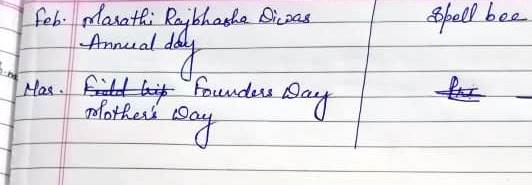 Feb. Marathi Rajbhasha Divas Spell bee
Annual day
Mar. Field trip Founders Day
Mother's Day